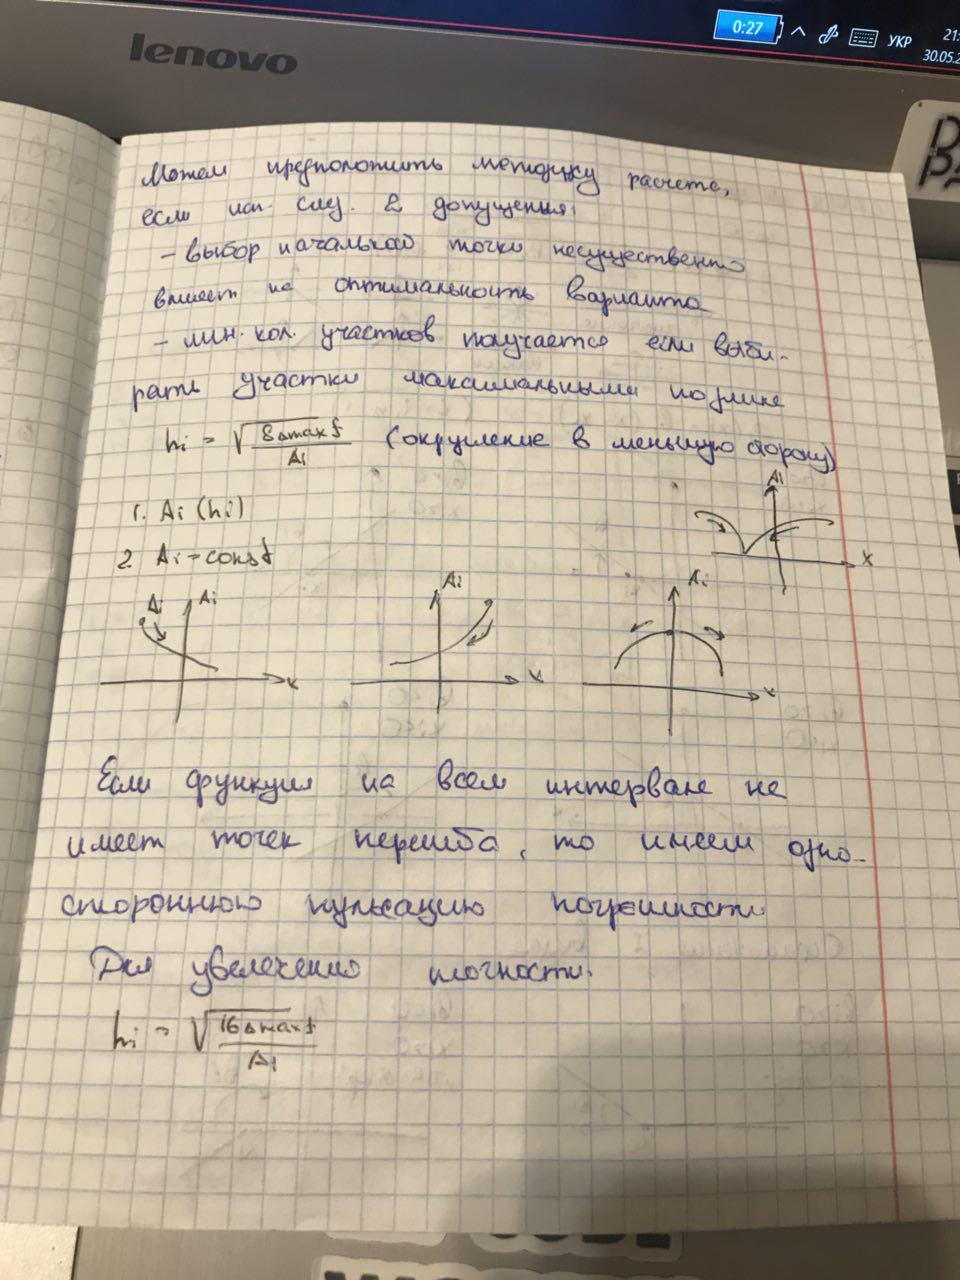 lenovo
0:27
УКР
21:
30.05.2
Можем предположить методику расчета,
если исп. след. 2 допущения:
- выбор начальной точки несущественно
влияет на оптимальность варианта
- мин. кол. участков получается если выби-
рать участки максимальными по длине
hi = √(8Δmaxf / Ai) (округление в меньшую сторону)
1. Ai (hi)
2. Ai - const
Ai
x
Ai
Ai
x
Ai
x
Ai
x
Если функция на всем интервале не
имеет точек перегиба, то имеем одно-
стороннюю пульсацию погрешности.
Для увеличению точности.
hi = √(16Δmaxf / Ai)